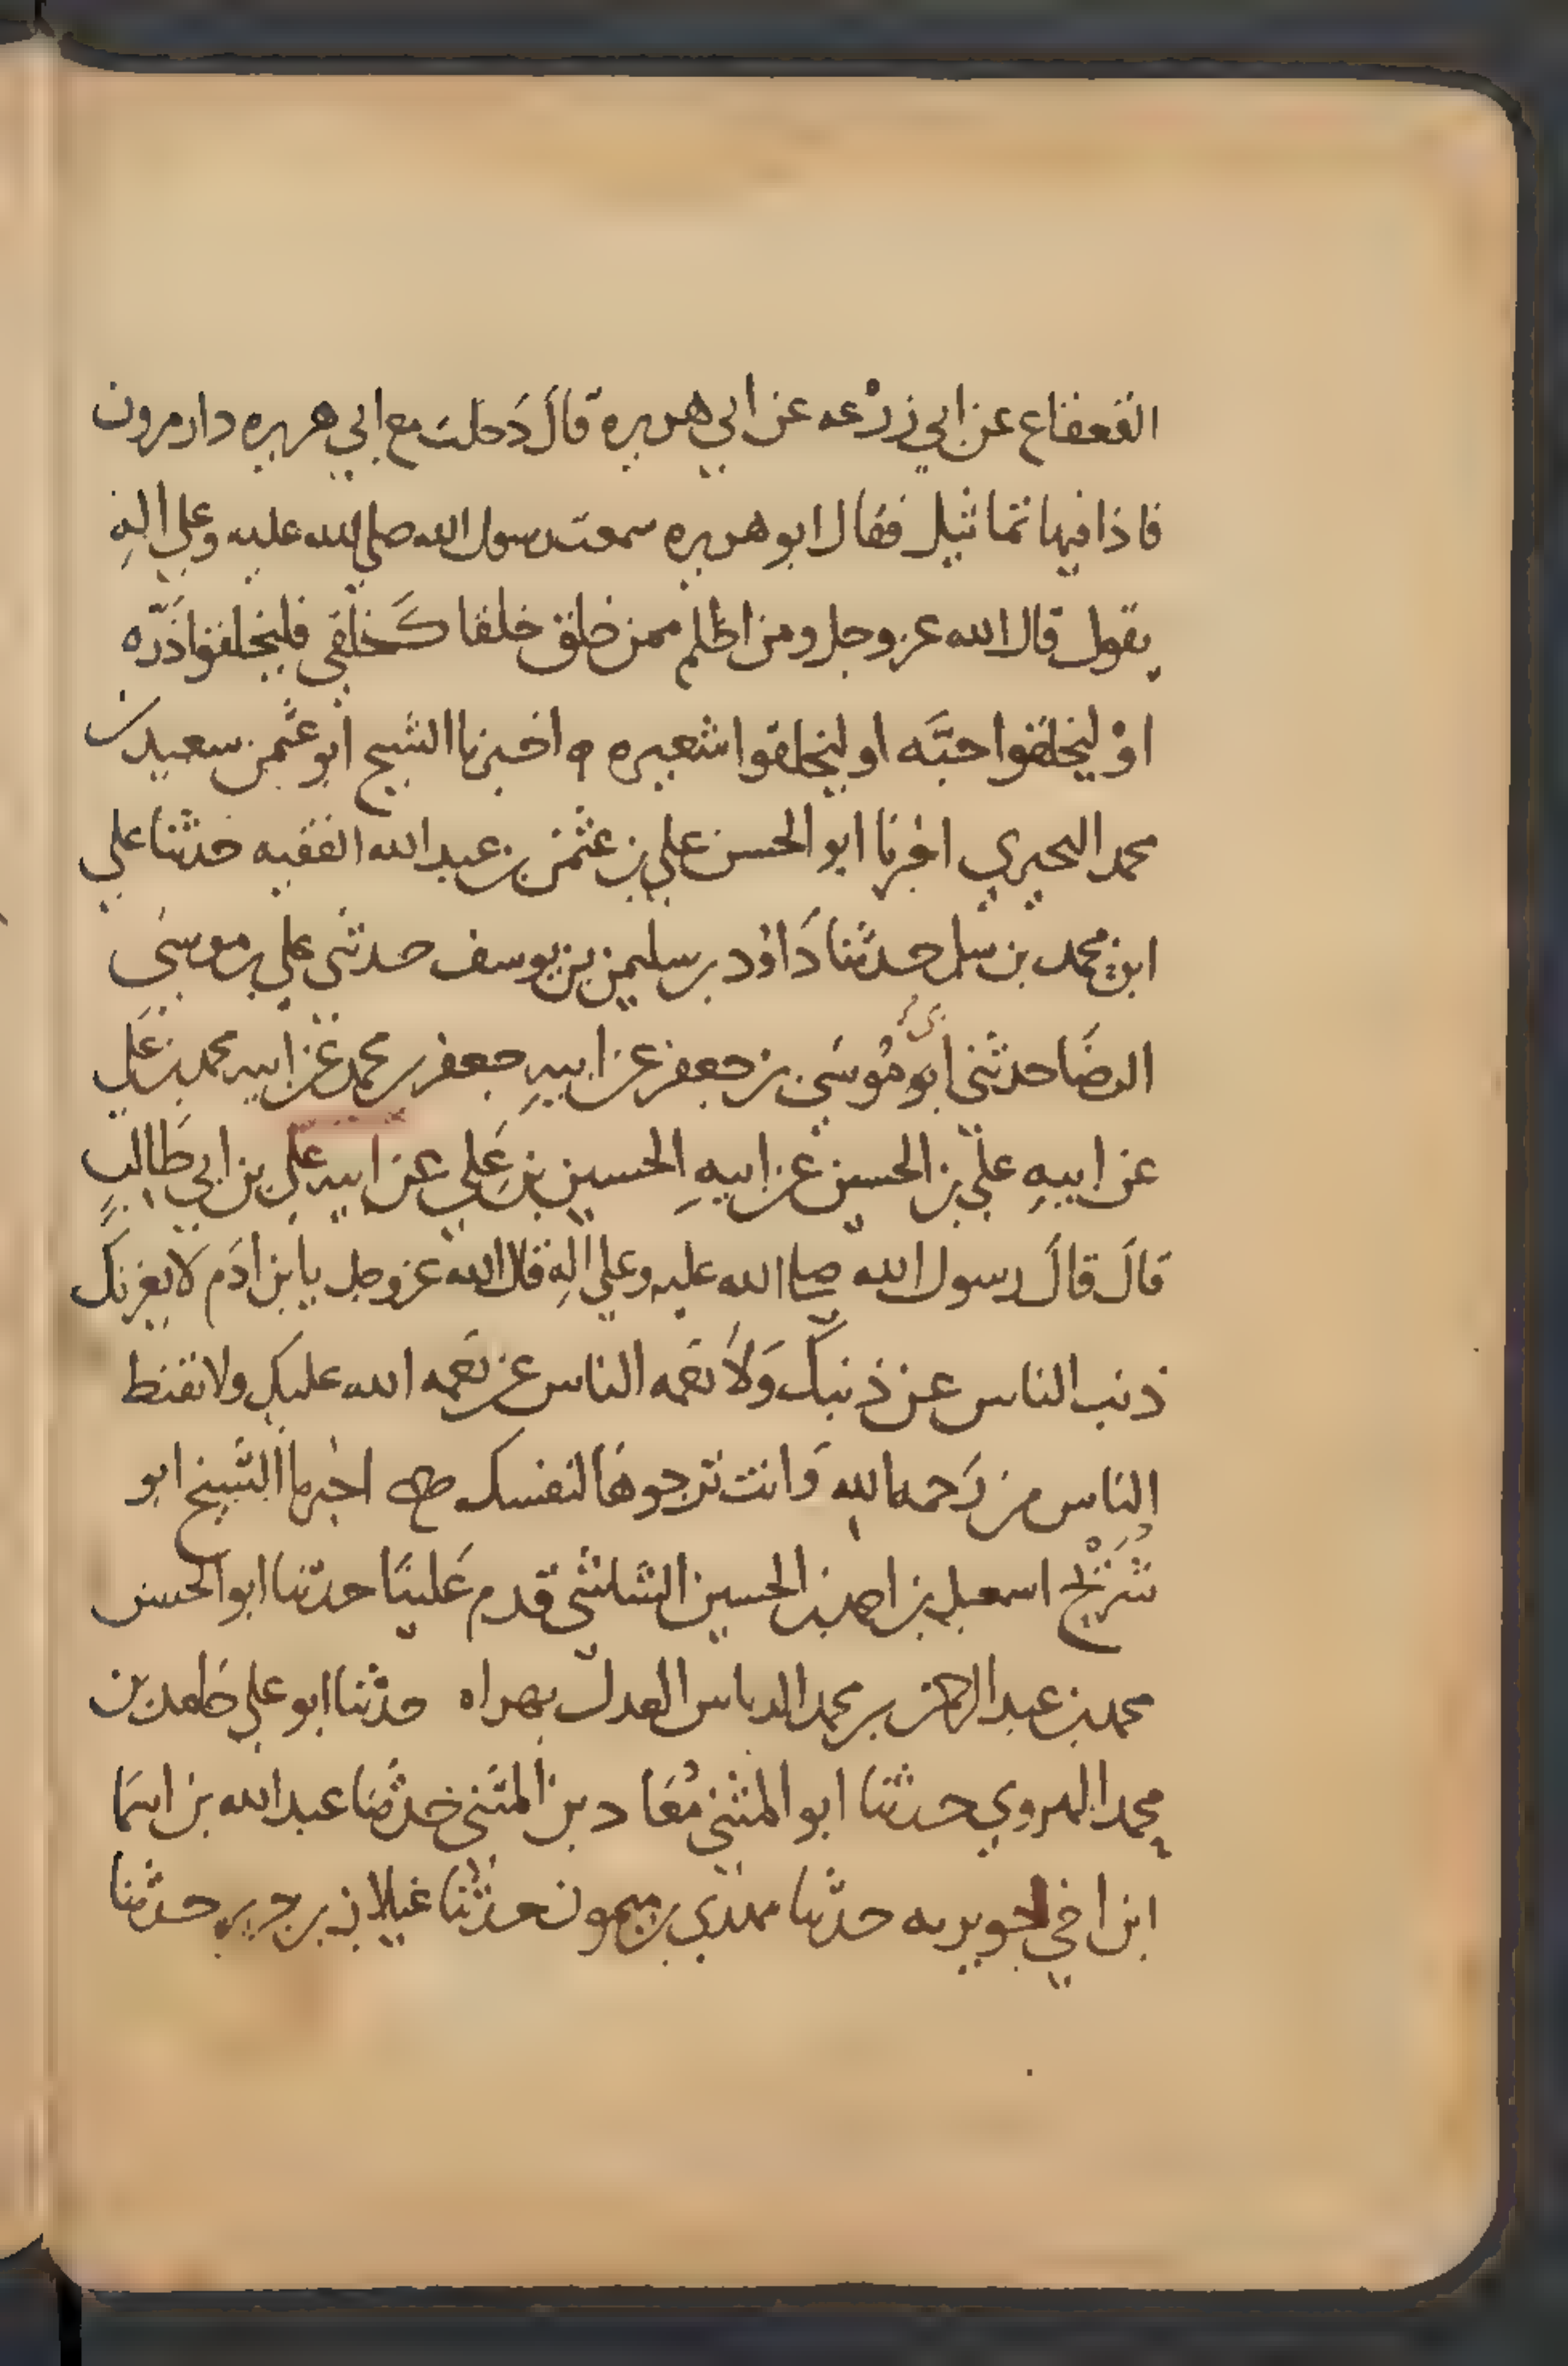 القعقاع عن ابي زرْعه عن ابي هريره قالَ دَخلت مع ابي هريره دار مرون
فاذا فيها تماثيل فقال ابو هريره سمعت رسول الله صلي الله عليه وعلي الهِ
يقول قال الله عز وجل ومن اظلم ممن خلق خلقا كَخلقي فليخلقوا ذَرّه
اوْ ليخلقوا حبَّه او ليخلقوا شعيره ه اخبرنا الشيخ ابو عثمن سعيد بن
محمد البحيري اخبرنا ابو الحسن علي بن عثمن بن عبد الله الفقيه حدثنا علي
ابن محمد بن حدثنا دَاوُد بن سليمن بن يوسف حدثني علي بن موسَي
الرضَا حدثني ابو مُوسَي بن جعفر عن ابيهِ جعفر بن محمد عن ابيه محمد بن عَلي
عن ابيهِ علي بن الحسين عن ابيهِ الحسين بن عَلِي عن ابيه علي بن ابي طَالبٍ
قالَ قالَ رسول الله صلي الله عليه وعلي الهِ قال الله عز وجل يا بن ادَم لَا يغرنكَ
ذنب الناس عن ذنبكَ وَلَا نعمه الناس عن نعمه الله عليك ولا تقنط
الناس من رَحمه الله وَانت ترجوهَا لنفسك ه اخبرنا الشيخ ابو
شُرَيْح اسمعيل بن احمد بن الحسين الشاشي قدم عَلينَا حدثنا ابو الحسن
محمد بن عبد الرحمن بن محمد الدباس العدل بهراه حدثنا ابو علي حَامد بن
محمد الهروي حدثنا ابو المثني مُعَاد بن المثَني حدثنَا عبد الله بن اسمَا
ابن اخي جويريه حدثنا مهدي بن ميمون حدثنا غيلان بن جرير حدثنا